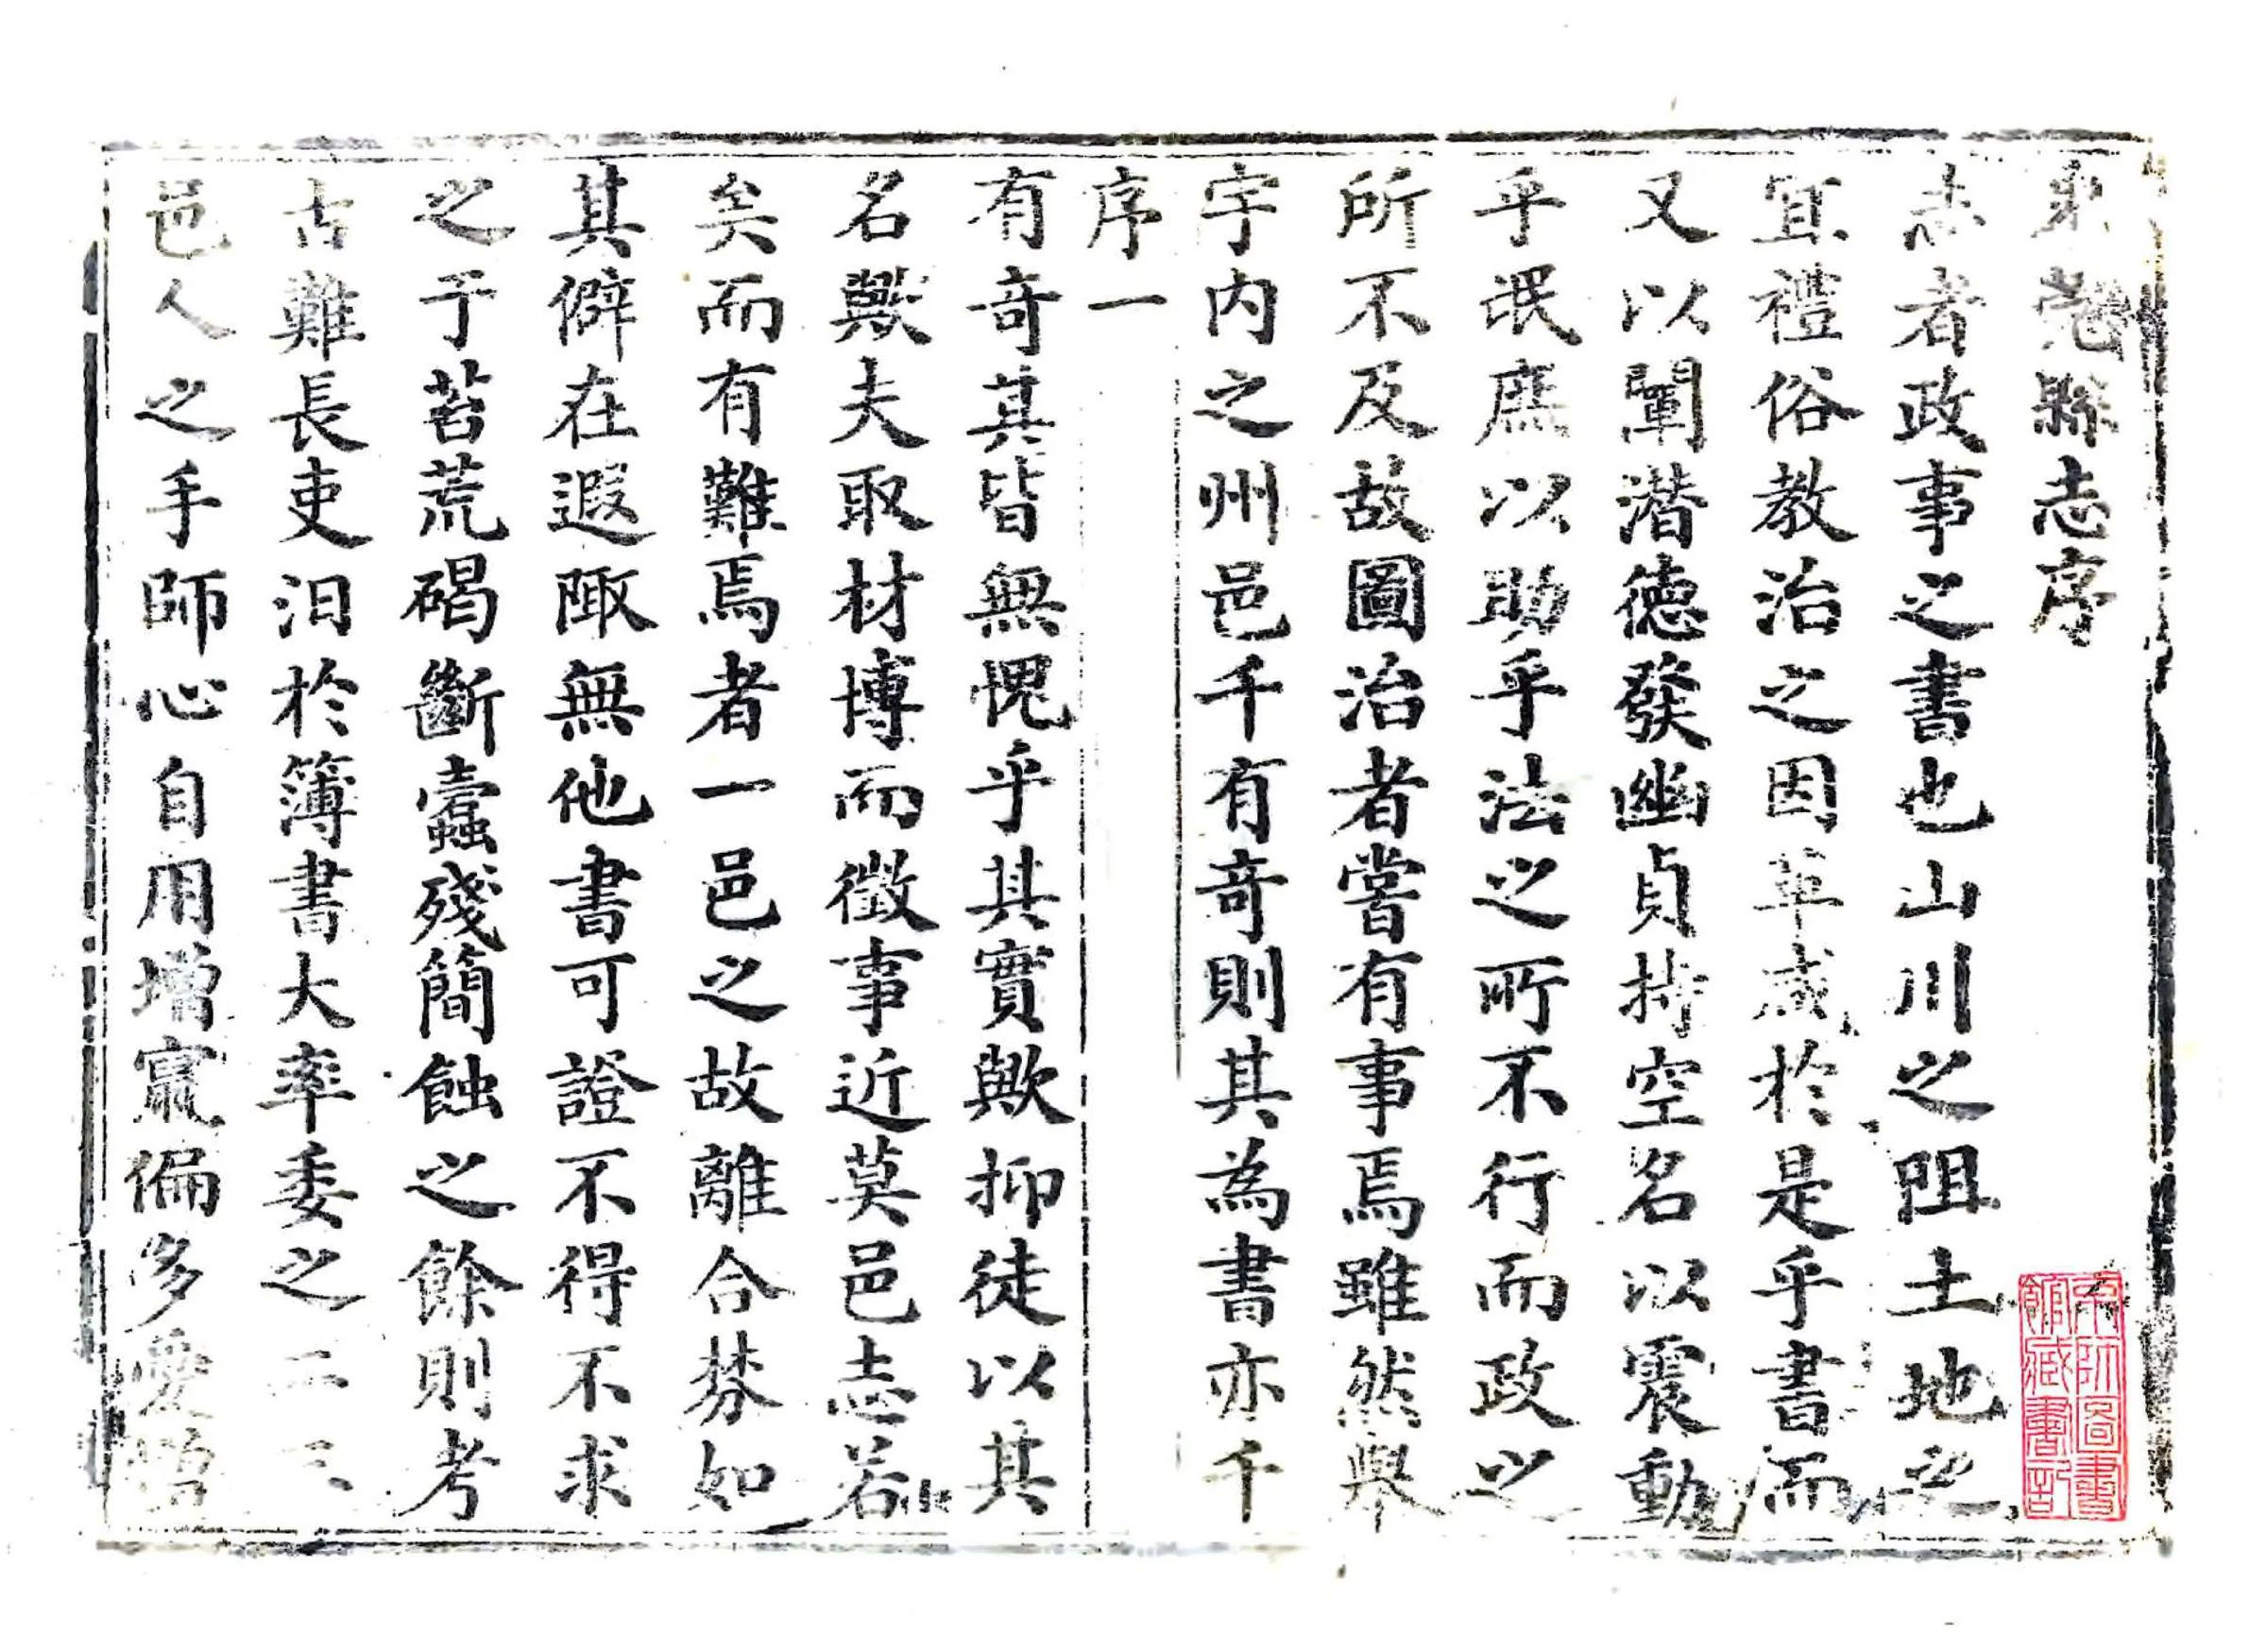 東莞縣志序
志者政事之書也山川之阻土地之
宜禮俗教治之因革咸於是乎書而
又以闡潛德發幽貞持空名以震動
乎氓庶以助乎法之所不行而政之
所不及故圖治者嘗有事焉雖然舉
宇内之州邑千有奇則其為書亦千
序一
有奇其皆無愧乎其實歟抑徒以其
名歟夫取材博而徵事近莫邑志若
矣而有難焉者一邑之故離合棼如
其僻在遐陬無他書可證不得不求
之于苔荒碣斷蠹殘簡蝕之餘則考
古難長吏汨於簿書大率委之二三
邑人之手師心自用增竄偏多愛憎